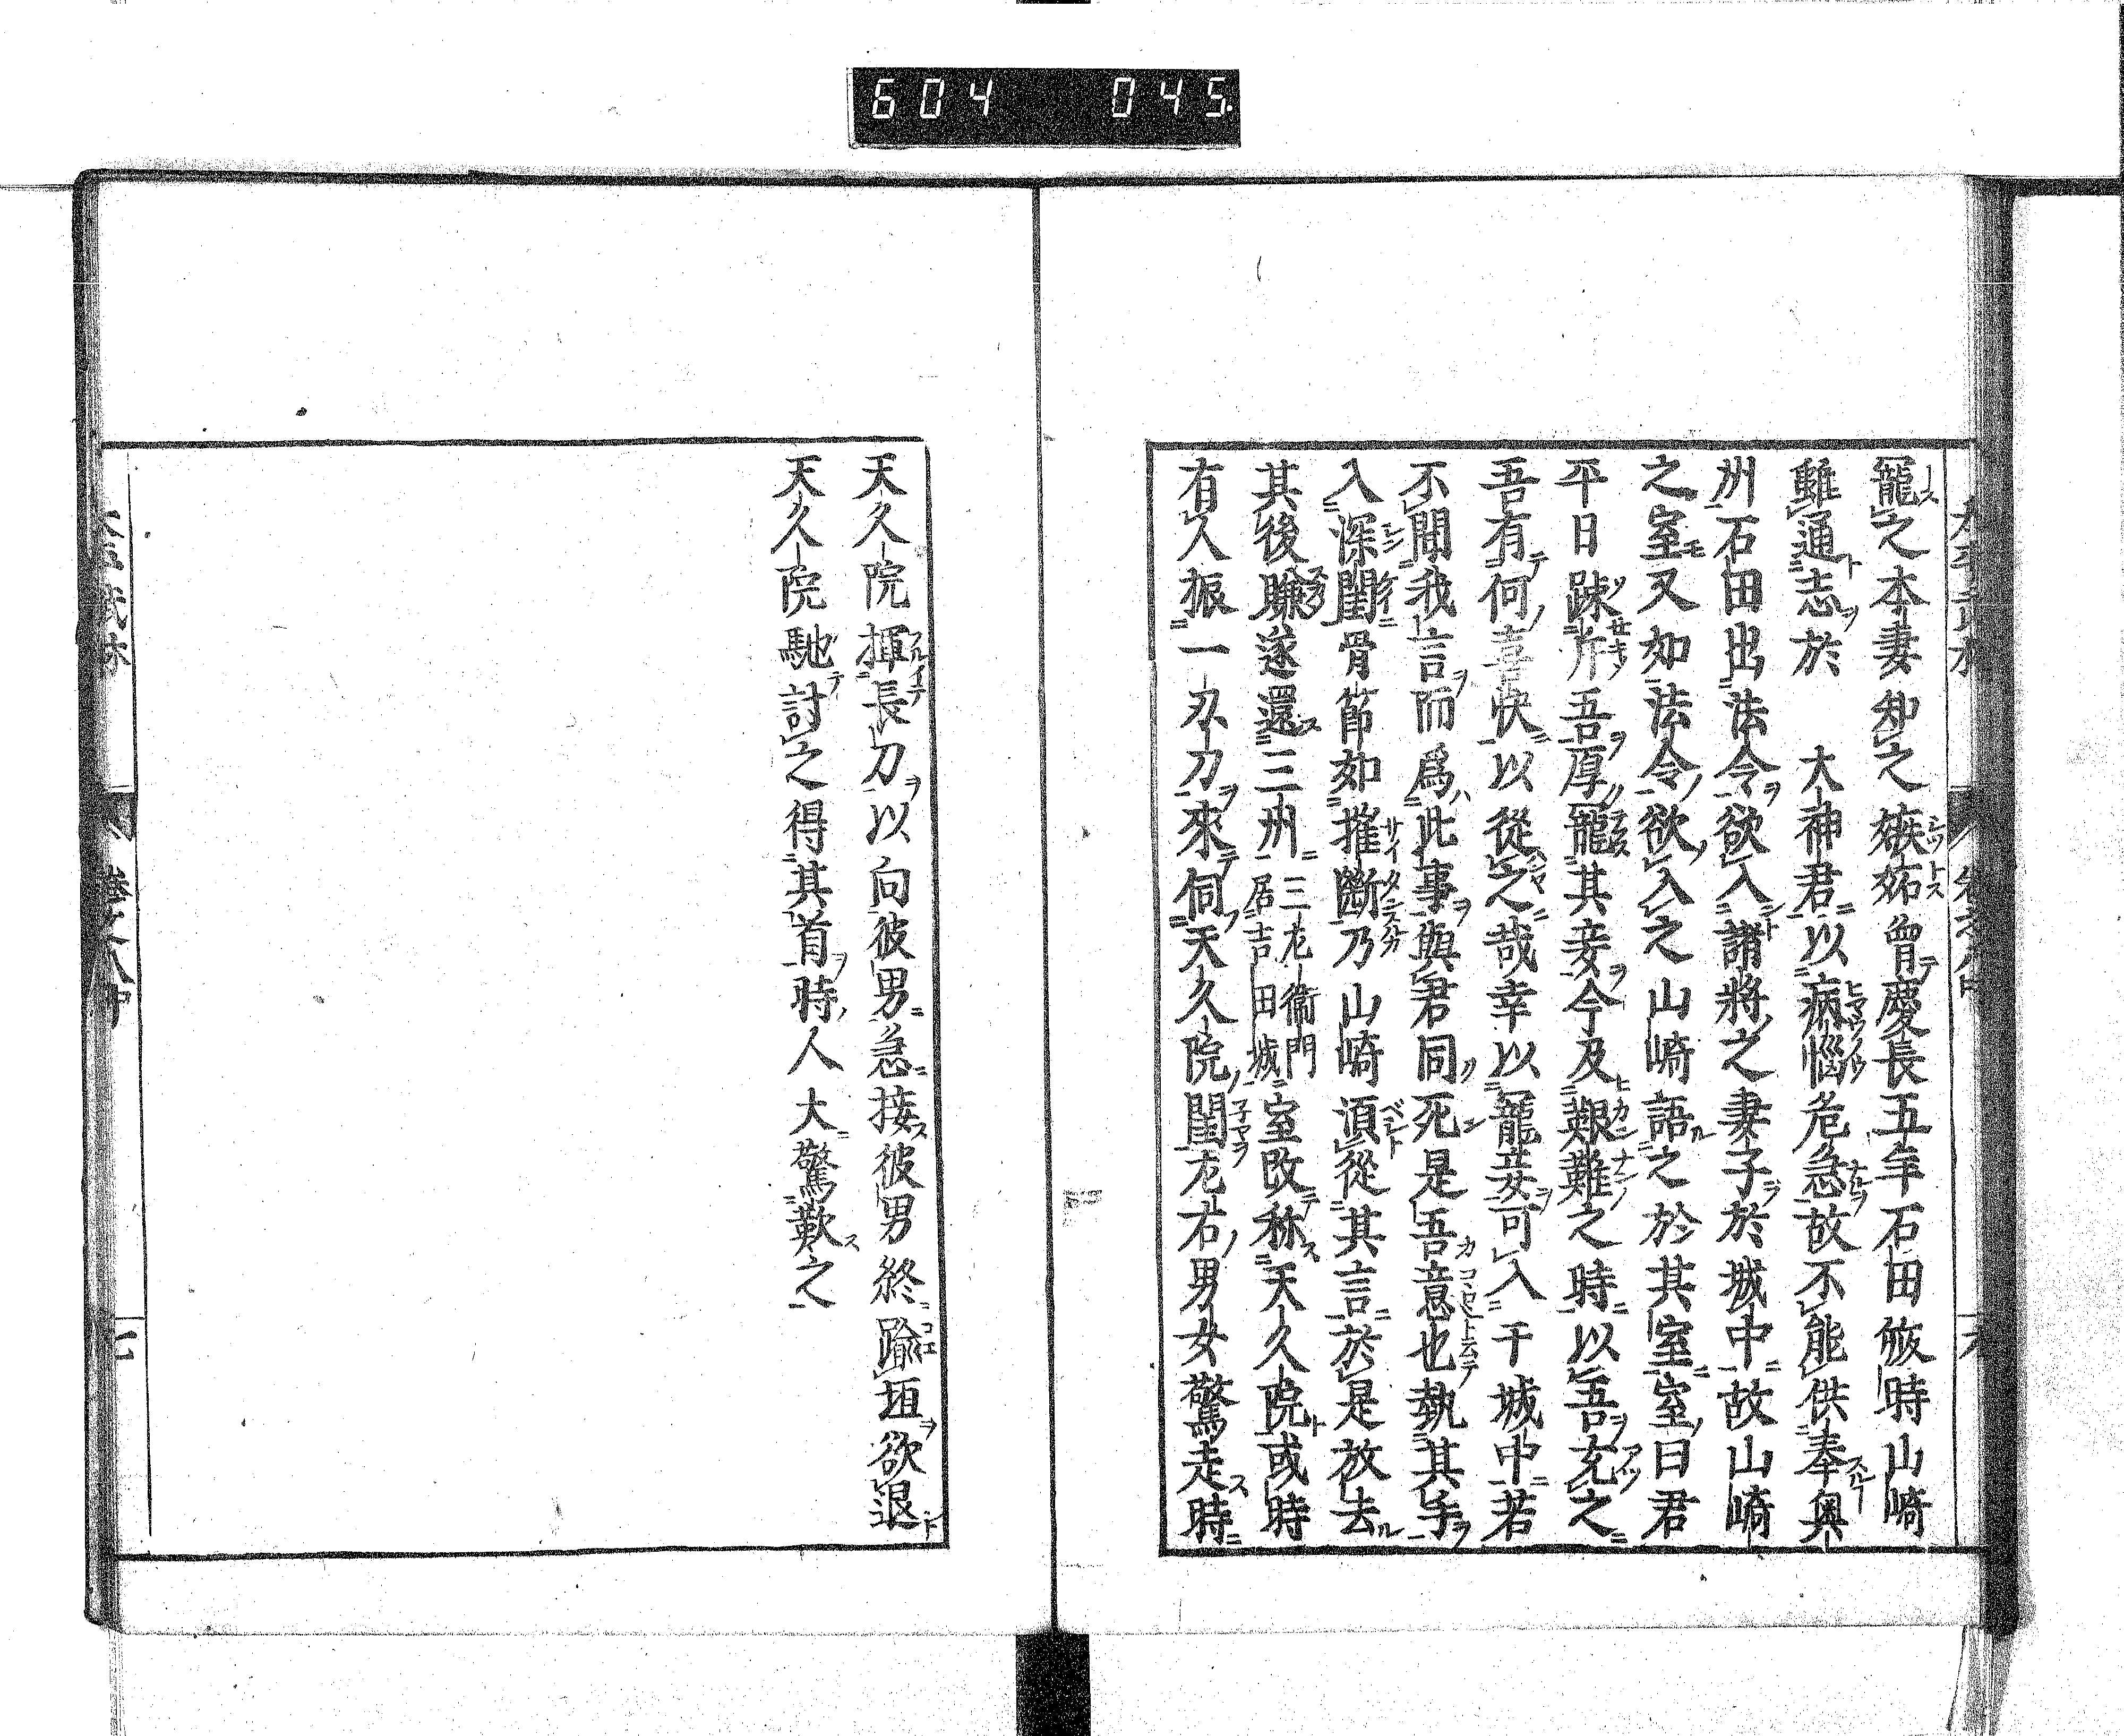 604 045
寵之本妻知之嫉妬曾慶長五年石田叛時山崎
雖通志於 大神君以病惱危急故不能供奉奧
州石田出法令欲入諸將之妻子於城中故山崎
之室又如法令欲入之山崎語之於其室室曰君
平日踈斥吾厚寵其妾今及艱難之時以吾充之
吾有何喜快以從之哉幸以寵妾可入于城中若
不聞我言而爲此事與君同死是吾意也執其手
入深閨骨節如摧斷乃山崎湏從其言於是放去
其後賺遂還三州三左衞門居吉田城室改称天久院或時
有人振一刃刀來伺天久院閨左右男女驚走時
天久院揮長刀以向彼男急接彼男終踰垣欲退
天久院馳討之得其首時人大驚歎之